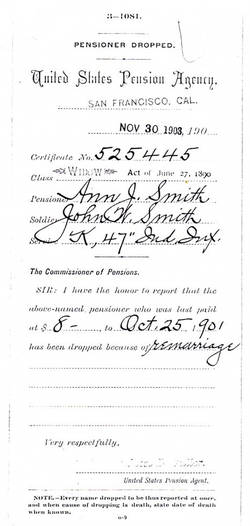 3-1081.
PENSIONER DROPPED.
United States Pension Agency,
SAN FRANCISCO, CAL.
NOV 30 1903, 190
Certificate No. 525445
Class WIDOW Act of June 27, 1890
Pensioner Ann J. Smith
Soldier John W. Smith
"K, 47" Ind. Inf.
The Commissioner of Pensions.
SIR: I have the honor to report that the
above-named pensioner who was last paid
at $ 8-, to Oct. 25, 1901
has been dropped because of remarriage
Very respectfully,
United States Pension Agent.
NOTE.—Every name dropped to be thus reported at once,
and when cause of dropping is death, state date of death
when known.